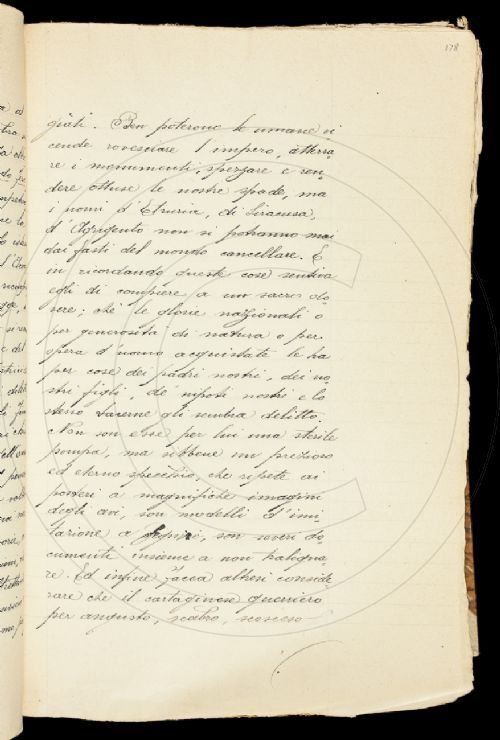 178
giati. Ben poterono le umane vi
cende rovesciare l'impero, atterra
re i monumenti, spezzare e ren
dere ottuse le nostre spade, ma
i nomi d'Etruria, di Siracusa,
d'Agrigento non si potranno mai
dai fasti del mondo cancellare. E
in ricordando queste cose sentiva
egli di compiere a un sacro do-
vere; chè le glorie nazionali o
per generosità di natura o per
opera d'uomo acquistate le ha
per cose dei padri nostri, dei no-
stri figli, de' nipoti nostri e lo
stesso tacerne gli sembra delitto.
Non son esse per lui una sterile
pompa, ma sibbene un prezioso
ed eterno specchio, che ripete ai
posteri a magnifiche imagini
degli avi, son modelli d'imi-
tazione a seguire, son severi do-
cumenti insieme a non traligna-
re. Ed infine facea altresì conside-
rare che il cartaginese guerriero
per angusto, scabro, scosceso